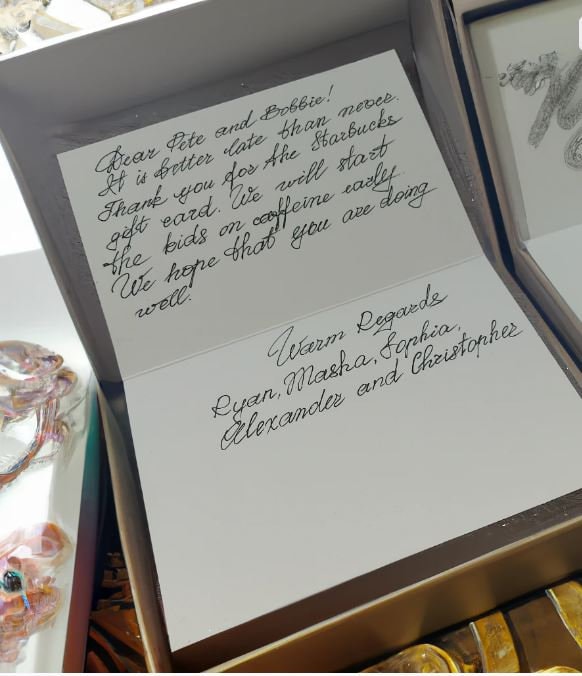 Dear Pete and Bobbie!
It is better late than never.
Thank you for the Starbucks
gift card. We will start
the kids on caffeine early.
We hope that you are doing
well.
Warm Regards
Ryan, Masha, Sophia,
Alexander and Christopher